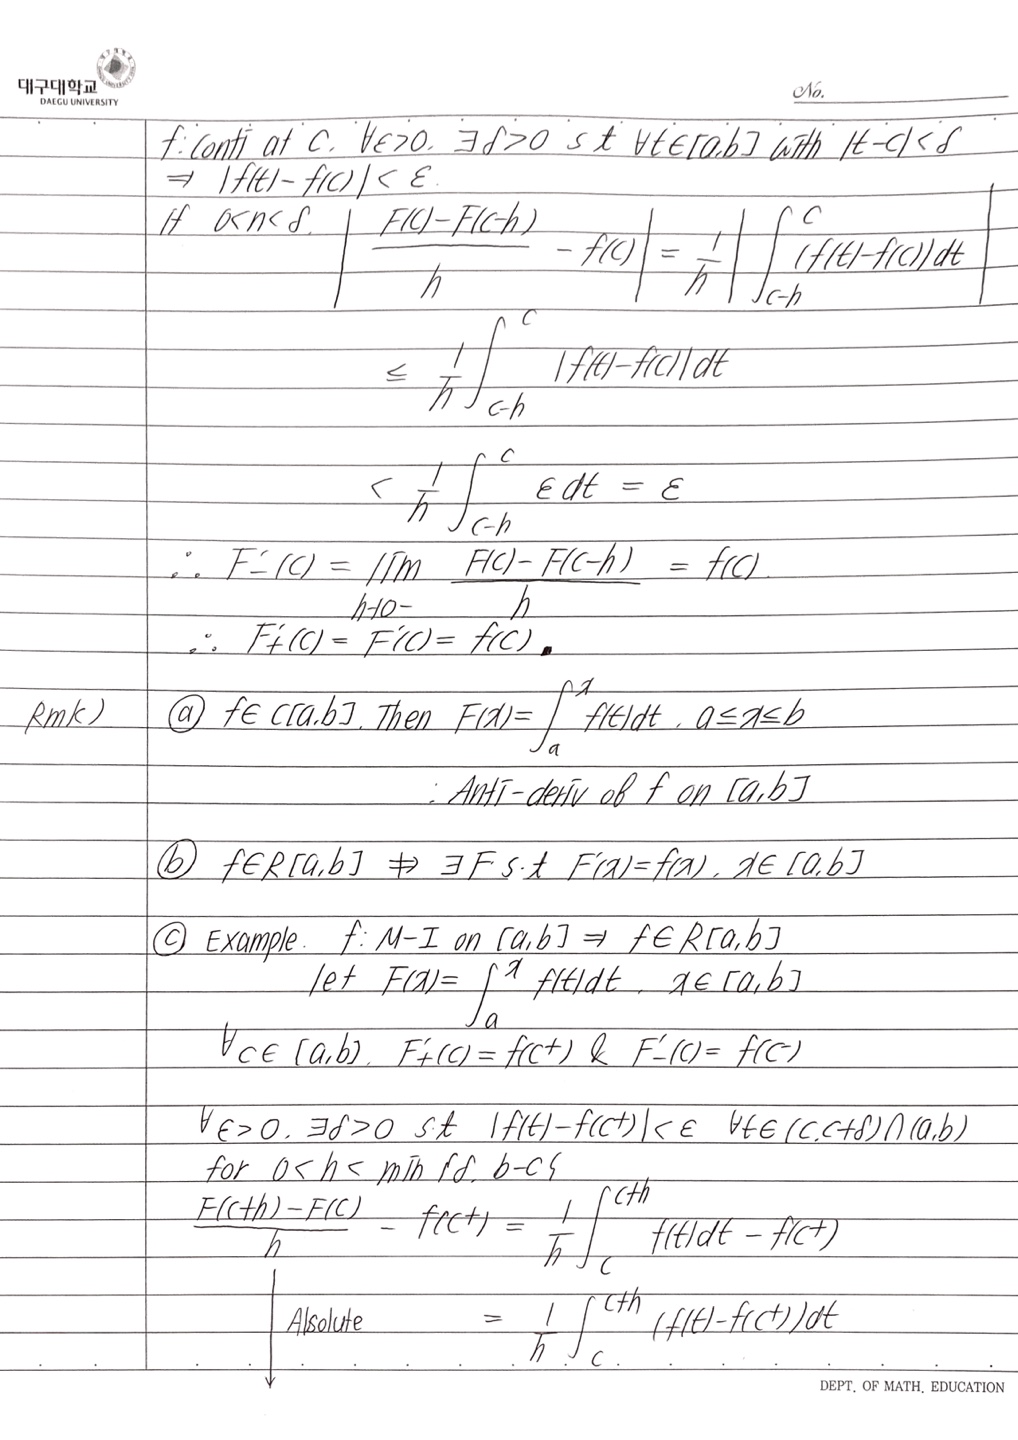 대구대학교
DAEGU UNIVERSITY
No.
f: conti at c. ∀ε>0. ∃δ>0 s t ∀t∈[a,b] with |t-c|<δ
⇒ |f(t)-f(c)|<ε.
If 0<h<δ. |(F(c)-F(c-h))/h - f(c)| = 1/h |∫_{c-h}^{c} (f(t)-f(c))dt|
≤ 1/h ∫_{c-h}^{c} |f(t)-f(c)|dt
< 1/h ∫_{c-h}^{c} ε dt = ε
∴ F'_-(c) = lim_{h→0-} (F(c)-F(c-h))/h = f(c).
∴ F'_+(c) = F'(c) = f(c).
Rmk) ⓐ f∈C[a,b]. Then F(x)=∫_{a}^{x} f(t)dt. a≤x≤b
: Anti-deriv of f on [a,b]
ⓑ f∈R[a,b] ⇏ ∃F s.t F'(x)=f(x). x∈[a,b]
ⓒ Example. f: M-I on [a,b] ⇒ f∈R[a,b]
let F(x)=∫_{a}^{x} f(t)dt. x∈[a,b]
∀c∈[a,b]. F'_+(c)=f(c+) & F'_-(c)=f(c-)
∀ε>0. ∃δ>0 s.t |f(t)-f(c+)|<ε ∀t∈(c,c+δ)∩(a,b)
for 0<h<min{δ. b-c}
(F(c+h)-F(c))/h - f(c+) = 1/h ∫_{c}^{c+h} f(t)dt - f(c+)
Alsolute = 1/h ∫_{c}^{c+h} (f(t)-f(c+))dt
DEPT. OF MATH. EDUCATION